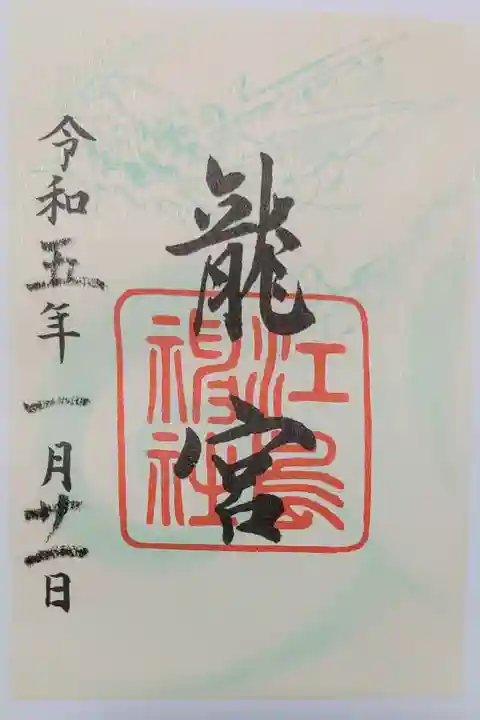 龍宮
江島
神社
令和五年 一月廿一日